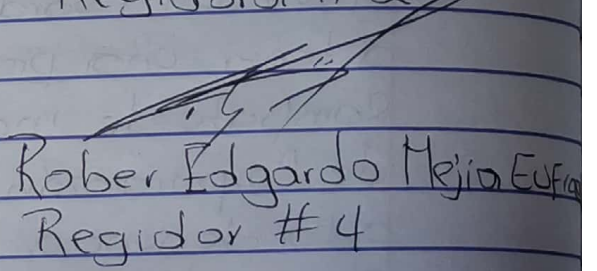 Rober Edgardo Mejia
Regidor #4